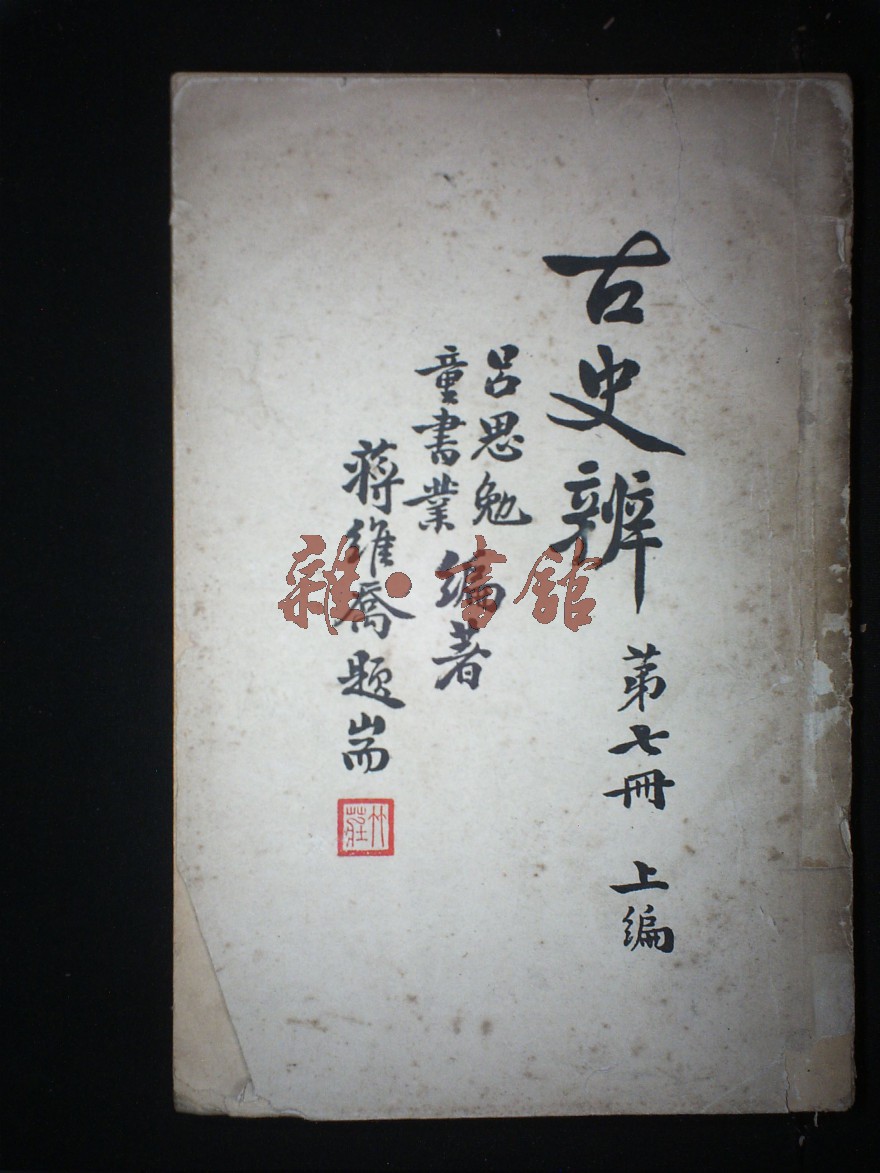 古史辨 第七冊 上編
呂思勉
童書業
編著
蔣維喬題耑
竹莊
雜·書館